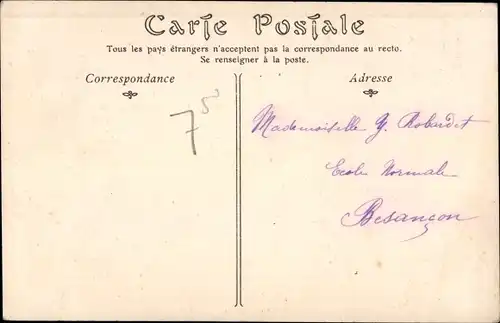 Carte Postale
Tous les pays étrangers n'acceptent pas la correspondance au recto.
Se renseigner à la poste.
Correspondance
Adresse
75
Mademoiselle Y. Robardet
Ecole Normale
Besançon